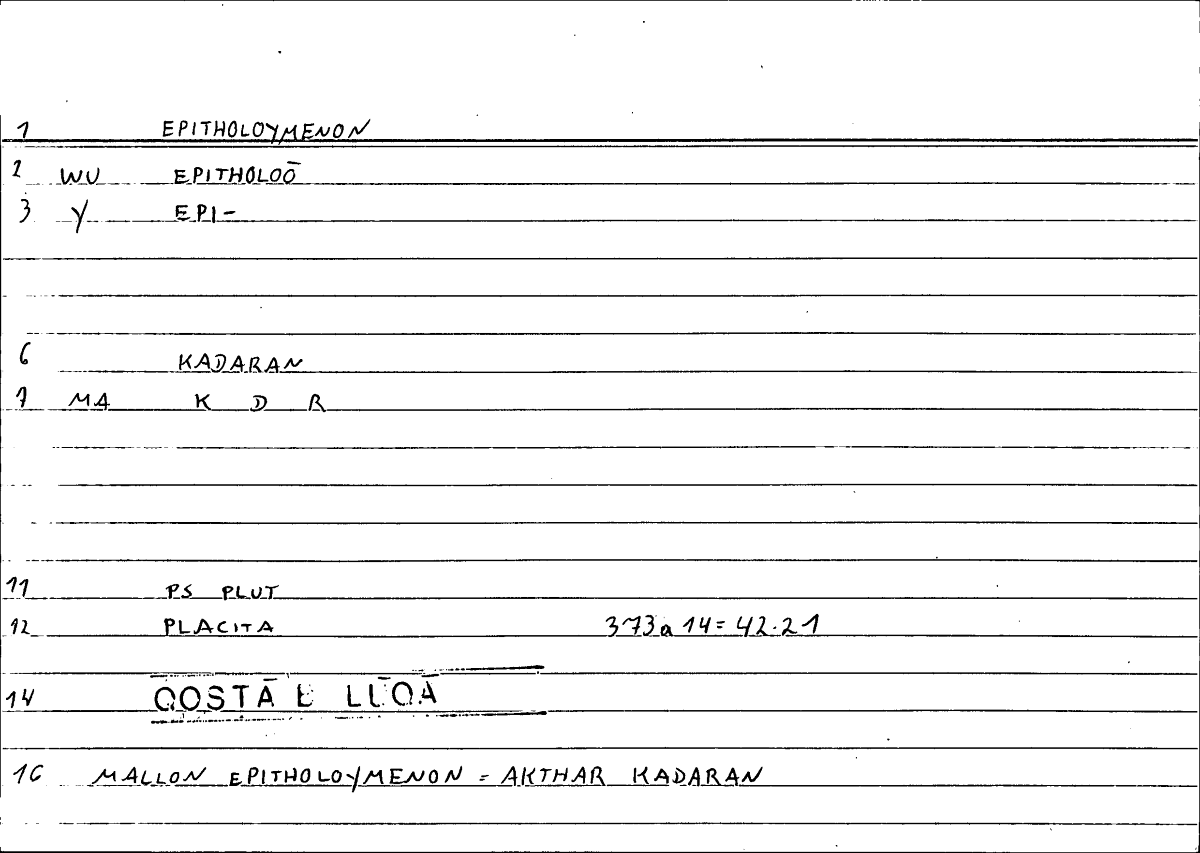 1 EPITHOLOYMENON
2 WU EPITHOLOŌ
3 Y EPI-
6 KADARAN
7 MA K D R
11 PS PLUT
12 PLACITA 373a14=42.21
14 QOSTĀ
16 MALLON EPITHOLOYMENON = AKTHAR KADARAN